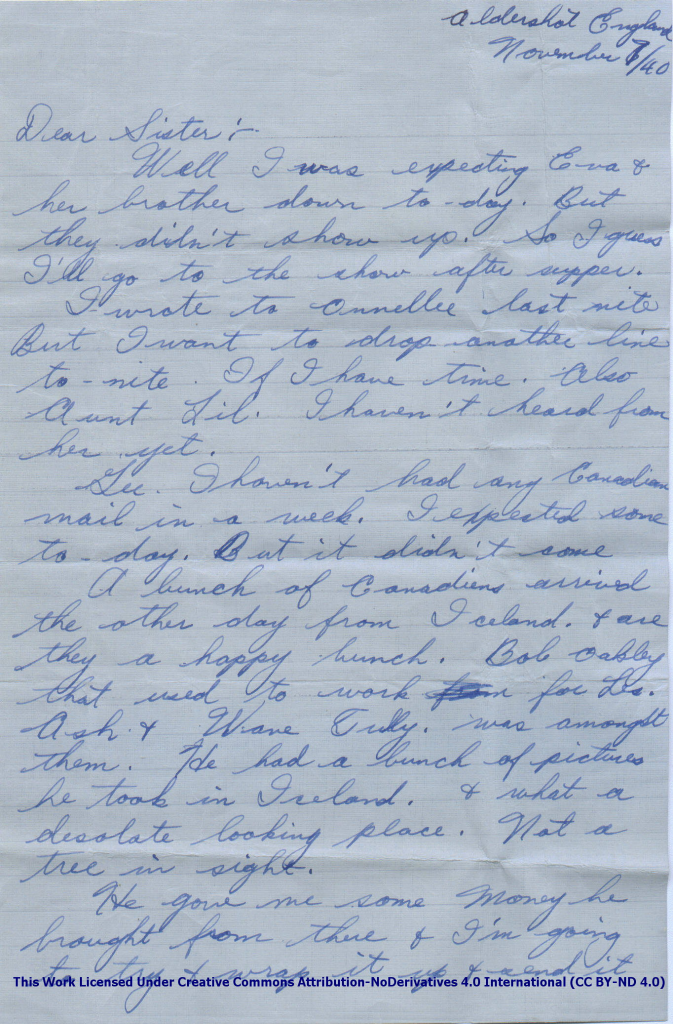 Aldershot England
November 7/40
Dear Sister :-
Well I was expecting Eva &
her brother down to-day. But
they didn't show up. So I guess
I'll go to the show after supper.
I wrote to Annellee last nite
But I want to drop another line
to-nite. If I have time. Also
Aunt Lil. I haven't heard from
her yet.
Gee. I haven't had any Canadian
mail in a week. I expected some
to-day. But it didn't come
A bunch of Canadiens arrived
the other day from Iceland. & are
they a happy bunch. Bob Oakley
that used to work for Les.
Ash & Wane Tully. was amongst
them. He had a bunch of pictures
he took in Iceland. & what a
desolate looking place. Not a
tree in sight.
He gave me some money he
brought from there & I'm going
to try & wrap it up & send it
This Work Licensed Under Creative Commons Attribution-NoDerivatives 4.0 International (CC BY-ND 4.0)